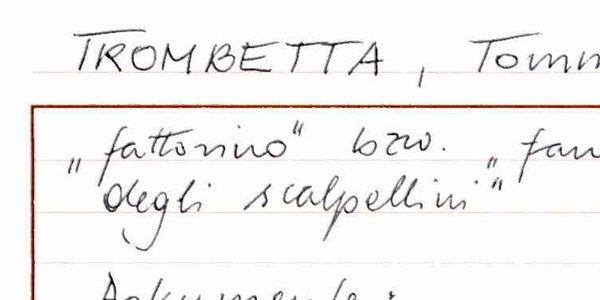 TROMBETTA, Tomm
„fattorino" bzw. „fan
degli scalpellini"
Dokumente: